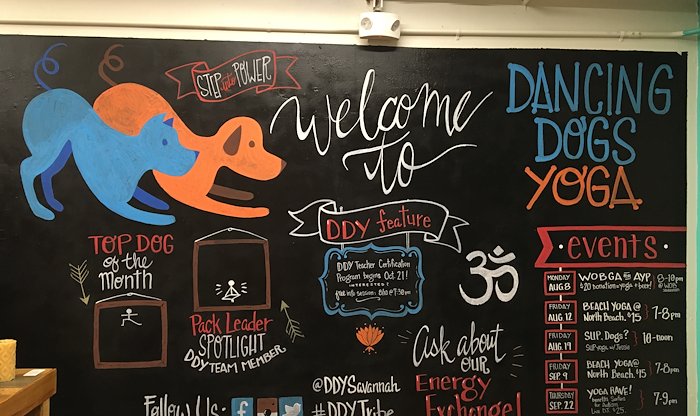 STEP into POWER
Welcome
to
DANCING
DOGS
YOGA
DDY feature
DDY Teacher Certification
Program begins Oct. 21!
INTERESTED?
TOP DOG
of the
MONTH
Pack Leader
SPOTLIGHT
DDY TEAM MEMBER
ॐ
Ask about
OUR
Energy
Exchange!
events
MONDAY
AUG.8
WOBGA AYP
$20 donation = yoga + beer!
8-10pm
FRIDAY
AUG.12
BEACH YOGA @
North Beach. $15
7-8pm
FRIDAY
AUG.19
SUP, Dogs?
SUP yoga w/ Jessie
10-noon
FRIDAY
SEP.9
BEACH YOGA @
North Beach. $15
7-8pm
THURSDAY
SEP.22
YOGA RAVE!
7-9pm
Follow Us:
@DDYSavannah
#DDYTribe